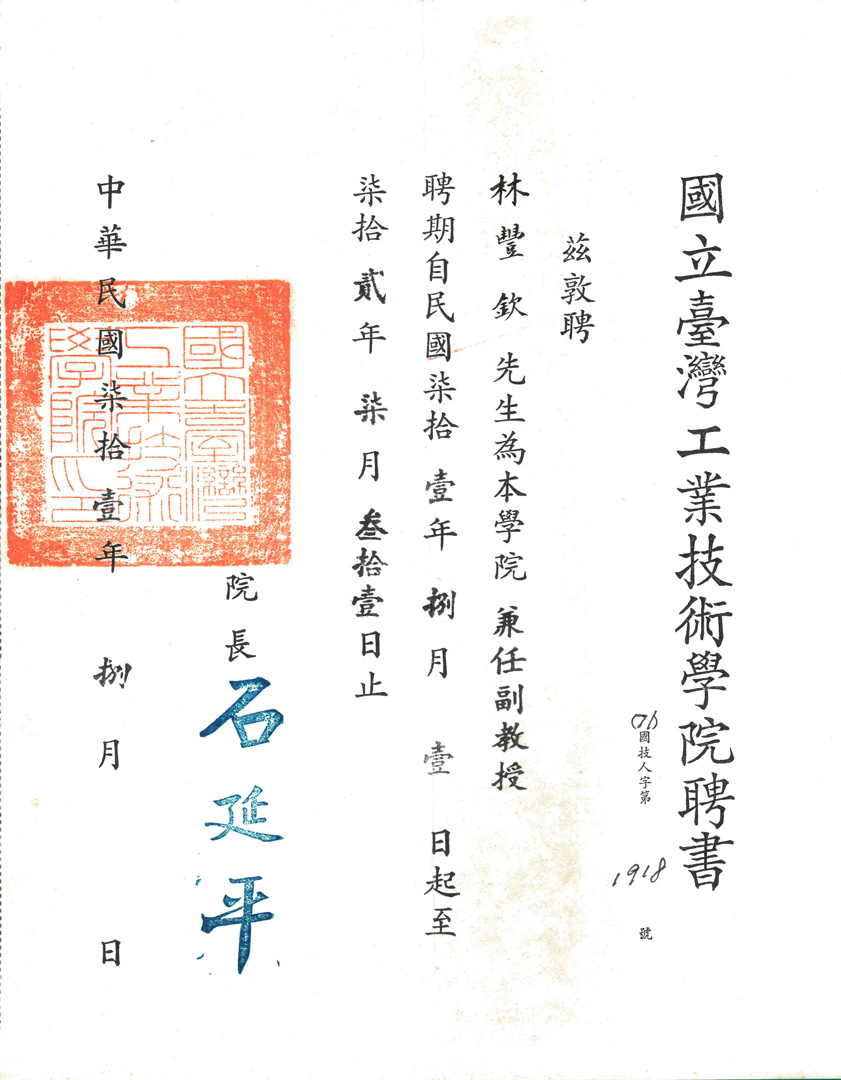 國立臺灣工業技術學院聘書
(71)國技人字第 1918 號
茲敦聘
林豐欽先生為本學院兼任副教授
聘期自民國柒拾壹年捌月壹日起至
柒拾貳年柒月叁拾壹日止
院長石延平
國立臺灣
工業技術
學院之印
中華民國柒拾壹年捌月 日